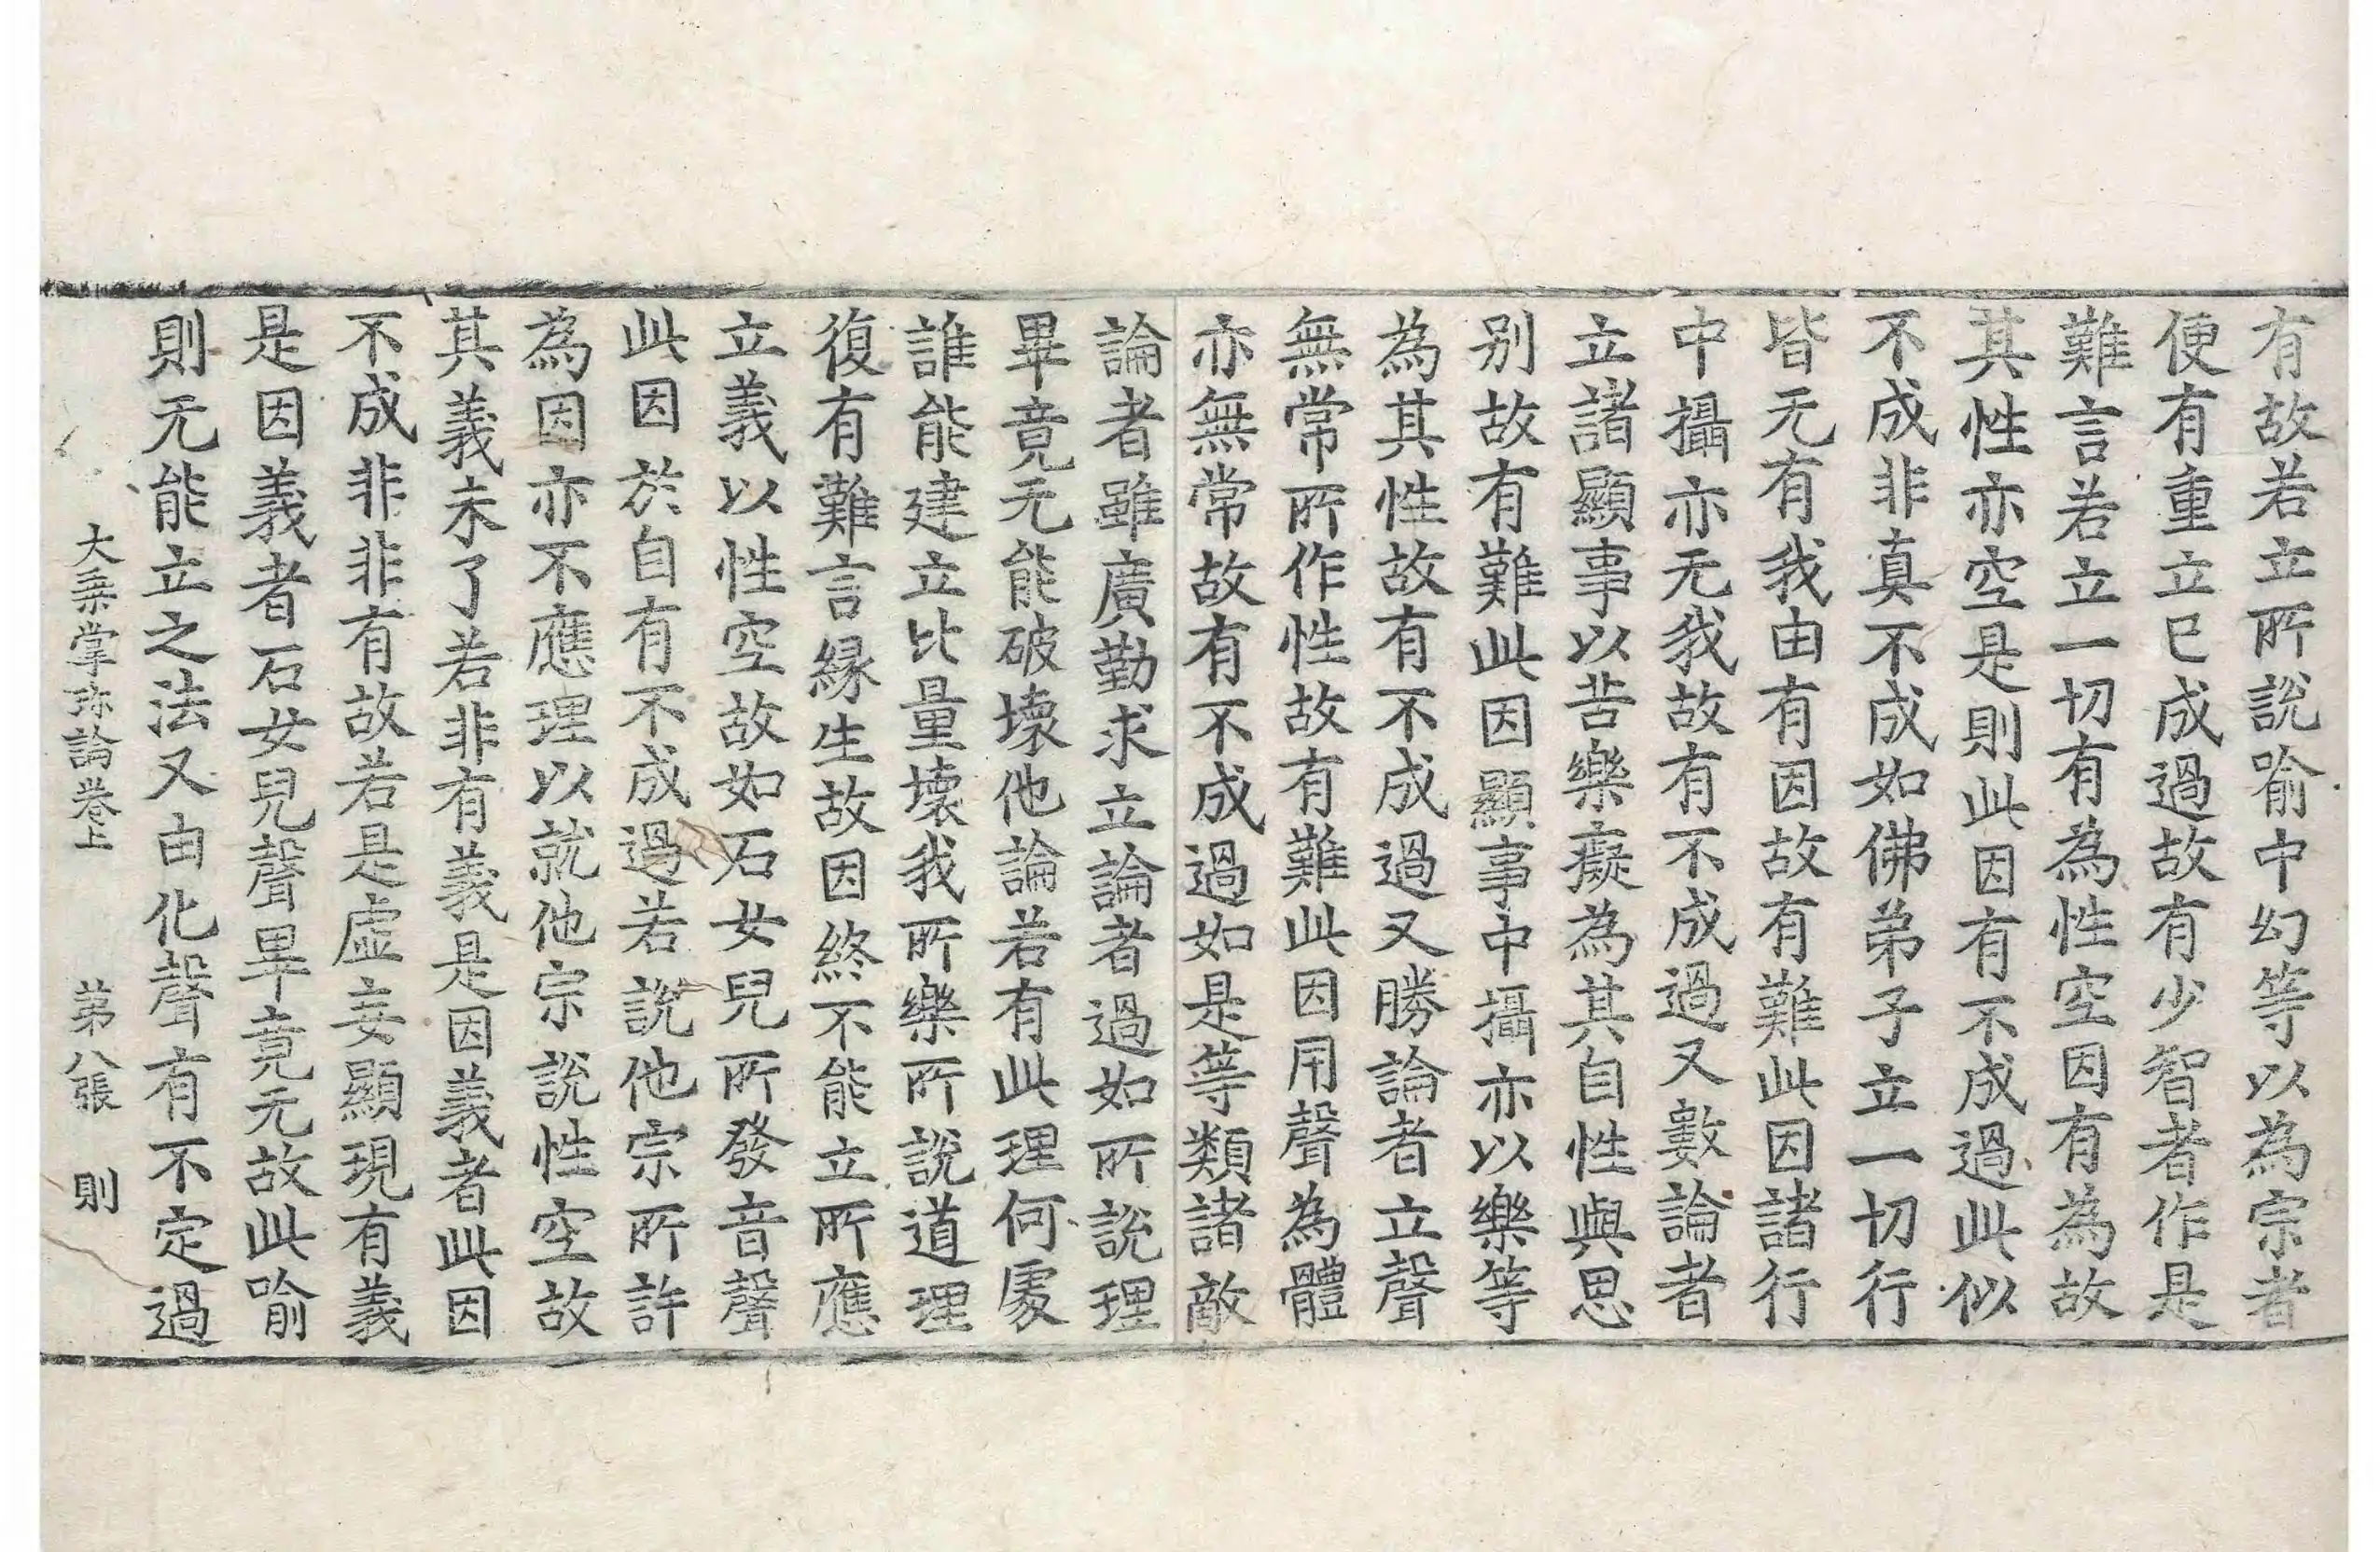 有故若立所說喻中幻等以為宗者
便有重立已成過故有少智者作是
難言若立一切有為性空因有為故
其性亦空是則此因有不成過此似
不成非真不成如佛弟子立一切行
皆无有我由有因故有難此因諸行
中攝亦无我故有不成過又數論者
立諸顯事以苦樂癡為其自性與思
别故有難此因顯事中攝亦以樂等
為其性故有不成過又勝論者立聲
無常所作性故有難此因用聲為體
亦無常故有不成過如是等類諸敵
論者雖廣勤求立論者過如所說理
畢竟无能破壞他論若有此理何處
誰能建立比量壞我所樂所說道理
復有難言緣生故因終不能立所應
立義以性空故如石女兒所發音聲
此因於自有不成過若說他宗所許
為因亦不應理以就他宗說性空故
其義未了若非有義是因義者此因
不成非非有故若是虛妄顯現有義
是因義者石女兒聲畢竟无故此喻
則无能立之法又由化聲有不定過
大乗掌珎論卷上 第八張 則